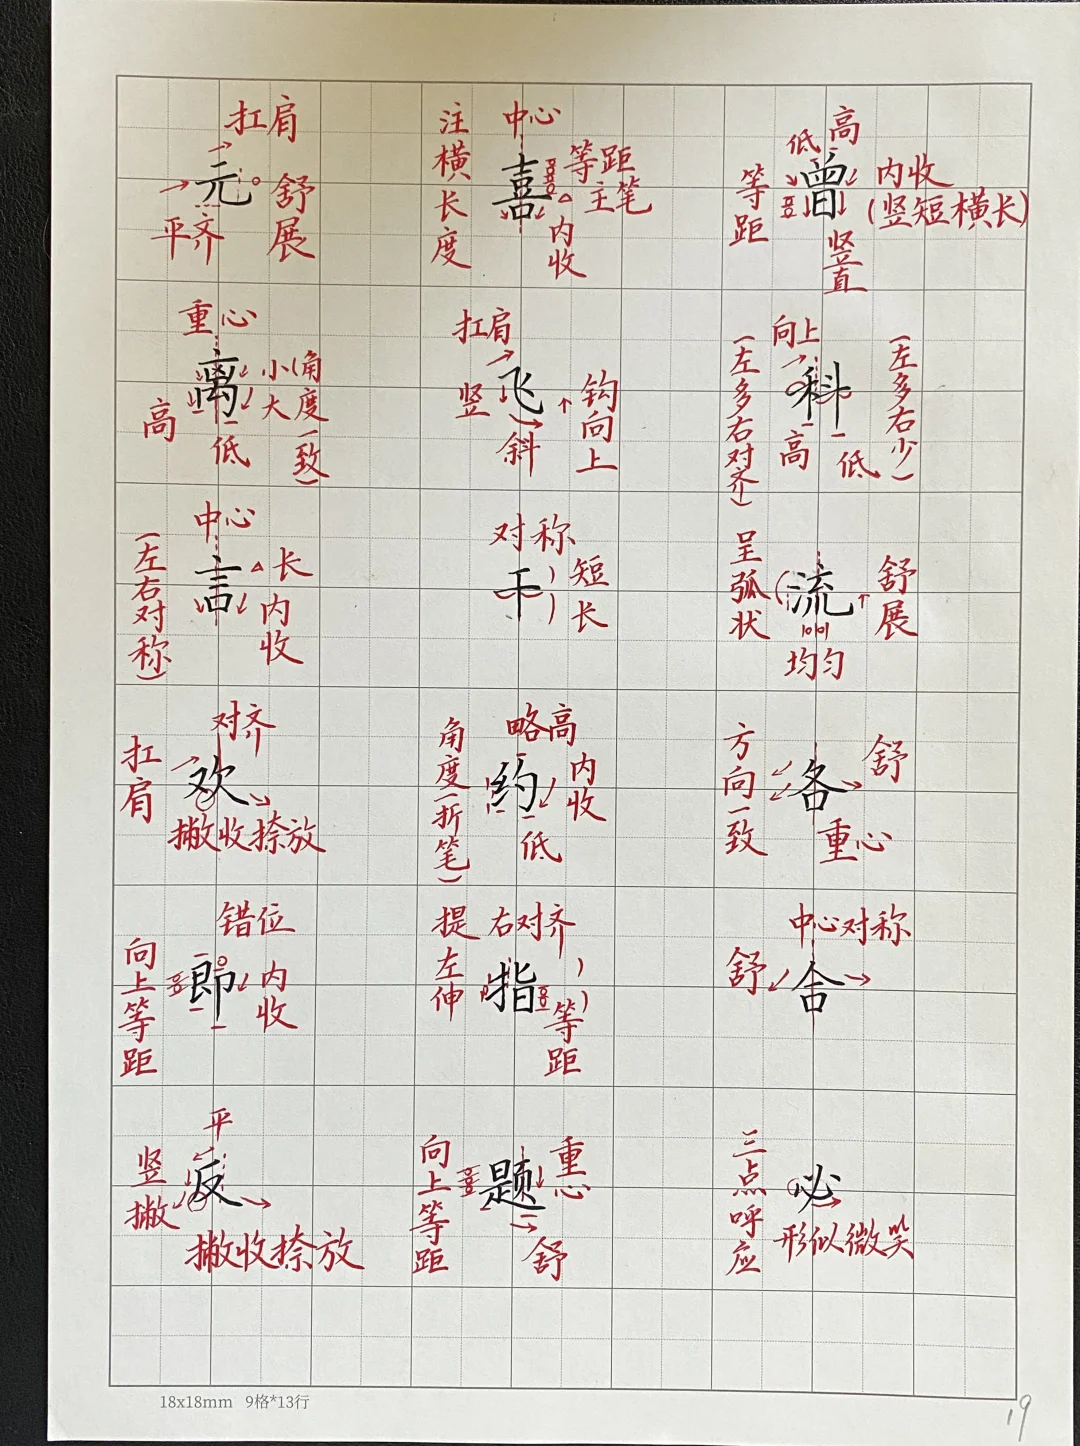 扛肩
元
平齐
舒展
注横长度
中心
喜
等距
主笔
内收
等距
低高
曾
内收
(竖短横长)
竖直
重心
离
高
低
小大
(角度一致)
扛肩
竖
飞
斜
钩向上
(左多右对齐)
向上
科
高
低
(左多右少)
(左右对称)
中心
言
长
内收
对称
干
短
长
呈弧状
流
均匀
舒展
对齐
扛肩
欢
撇收捺放
角度(折笔)
略高
约
内收
低
方向一致
各
舒
重心
错位
向上等距
即
内收
提左伸
右对齐
指
等距
中心对称
舒
舍
平
竖撇
反
撇收捺放
向上等距
题
重心
舒
三点呼应
必
形似微笑
18x18mm 9格*13行
19